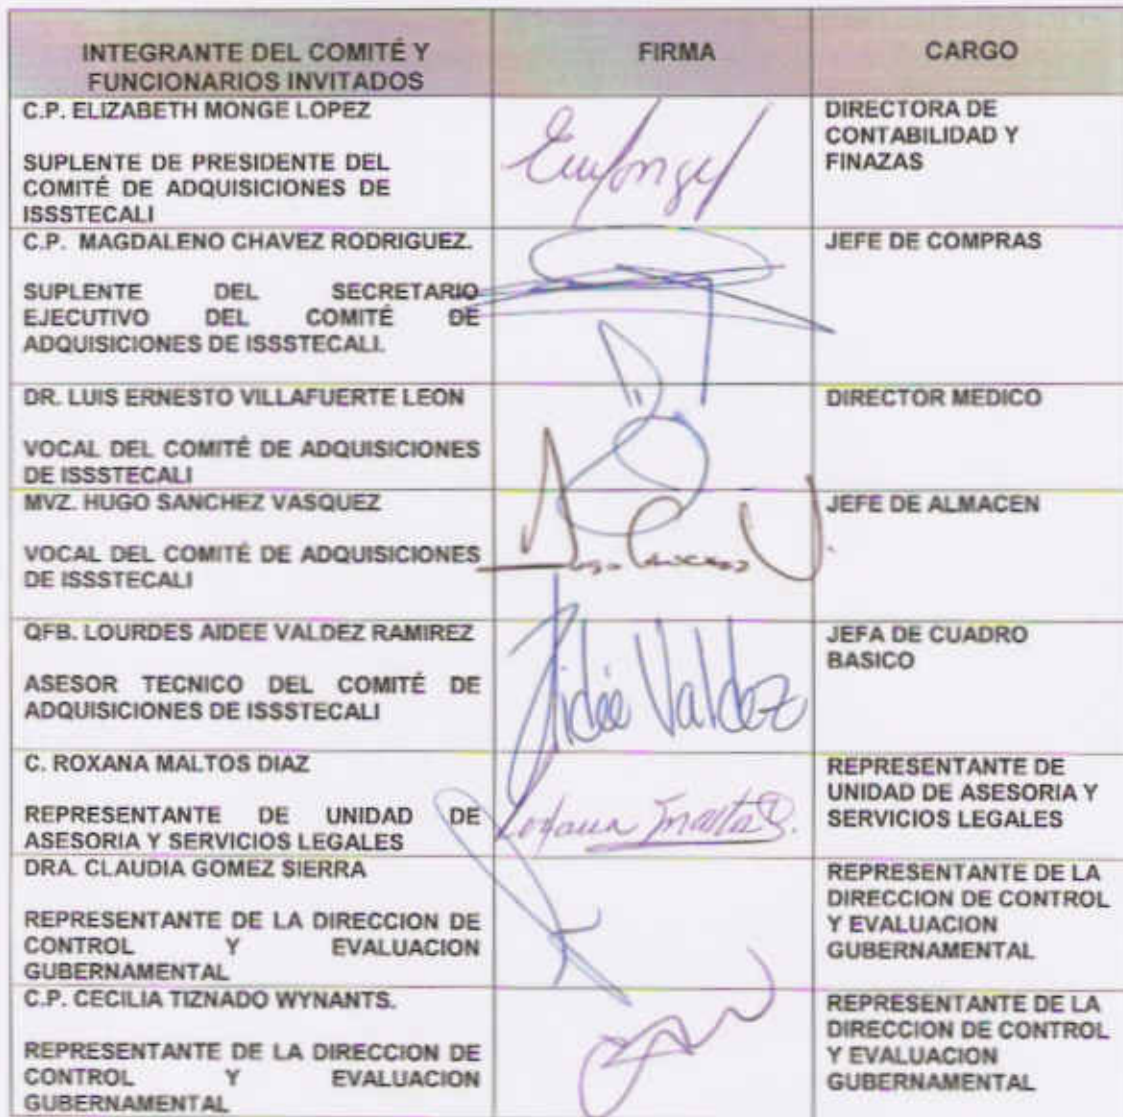 INTEGRANTE DEL COMITÉ Y
FUNCIONARIOS INVITADOS
FIRMA
CARGO
C.P. ELIZABETH MONGE LOPEZ
SUPLENTE DE PRESIDENTE DEL
COMITÉ DE ADQUISICIONES DE
ISSSTECALI
DIRECTORA DE
CONTABILIDAD Y
FINAZAS
C.P. MAGDALENO CHAVEZ RODRIGUEZ.
SUPLENTE DEL SECRETARIO
EJECUTIVO DEL COMITÉ DE
ADQUISICIONES DE ISSSTECALI.
JEFE DE COMPRAS
DR. LUIS ERNESTO VILLAFUERTE LEON
VOCAL DEL COMITÉ DE ADQUISICIONES
DE ISSSTECALI
DIRECTOR MEDICO
MVZ. HUGO SANCHEZ VASQUEZ
VOCAL DEL COMITÉ DE ADQUISICIONES
DE ISSSTECALI
JEFE DE ALMACEN
QFB. LOURDES AIDEE VALDEZ RAMIREZ
ASESOR TECNICO DEL COMITÉ DE
ADQUISICIONES DE ISSSTECALI
Aidée Valdez
JEFA DE CUADRO
BASICO
C. ROXANA MALTOS DIAZ
REPRESENTANTE DE UNIDAD DE
ASESORIA Y SERVICIOS LEGALES
REPRESENTANTE DE
UNIDAD DE ASESORIA Y
SERVICIOS LEGALES
DRA. CLAUDIA GOMEZ SIERRA
REPRESENTANTE DE LA DIRECCION DE
CONTROL Y EVALUACION
GUBERNAMENTAL
REPRESENTANTE DE LA
DIRECCION DE CONTROL
Y EVALUACION
GUBERNAMENTAL
C.P. CECILIA TIZNADO WYNANTS.
REPRESENTANTE DE LA DIRECCION DE
CONTROL Y EVALUACION
GUBERNAMENTAL
REPRESENTANTE DE LA
DIRECCION DE CONTROL
Y EVALUACION
GUBERNAMENTAL